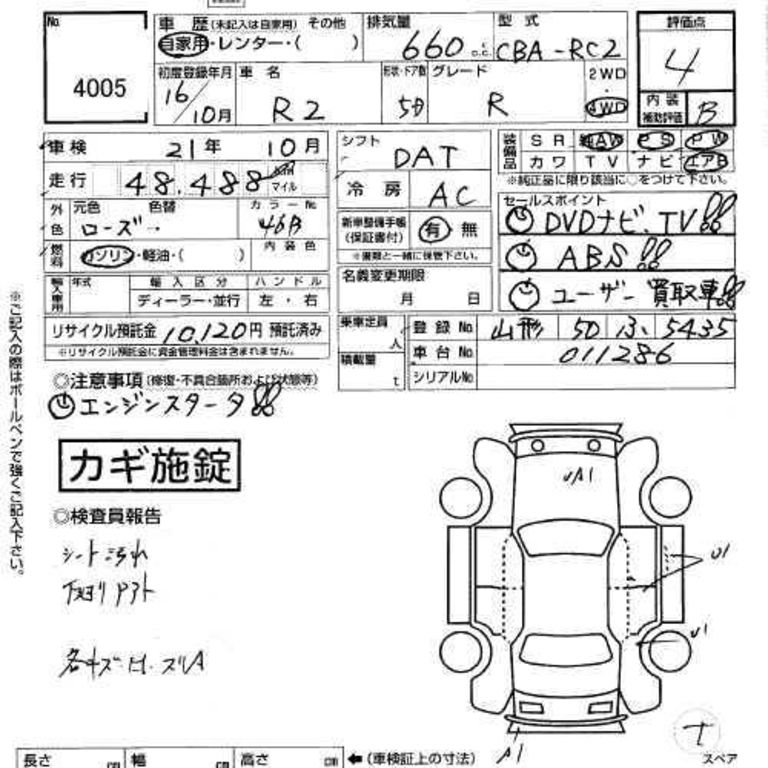 No
4005
車歴 (未記入は自家用) その他
自家用・レンター・( )
排気量
660 c.c.
型式
CBA-RC2
評価点
4
初度登録年月
16/10月
車名
R2
形状・ドア数
5D
グレード
R
2WD
・
4WD
内装
補助評価
B
車検 21年 10月
シフト
DAT
装備品
SR AW PS PW
カワ TV ナビ エアB
※純正品に限り該当に○をつけて下さい。
走行 48,488 km
マイル
冷房
AC
外色
元色 色替
ローズ→
カラーNo.
46B
内装色
新車整備手帳
(保証書付)
有 無
※書類と一緒に保管下さい。
セールスポイント
DVDナビ、TV!!
ABS!!
ユーザー買取車!!
燃料
ガソリン・軽油・( )
名義変更期限
月 日
輸入車用
年式
輸入区分
ディーラー・並行
ハンドル
左・右
リサイクル預託金 10,120円 預託済み
※リサイクル預託金に資金管理料金は含まれません。
乗車定員
人
積載量
t
登録No. 山形 50 ひ 5435
車台No. 011286
シリアルNo.
◎注意事項 (修復・不具合箇所および状態等)
エンジンスタータ!!
カギ施錠
◎検査員報告
シート汚れ
下廻りサビ
各キズ・凹・スリA
※ご記入の際はボールペンで強くご記入下さい。
A1
U1
U1
A1
t
スペア
長さ cm 幅 cm 高さ cm ←(車検証上の寸法)